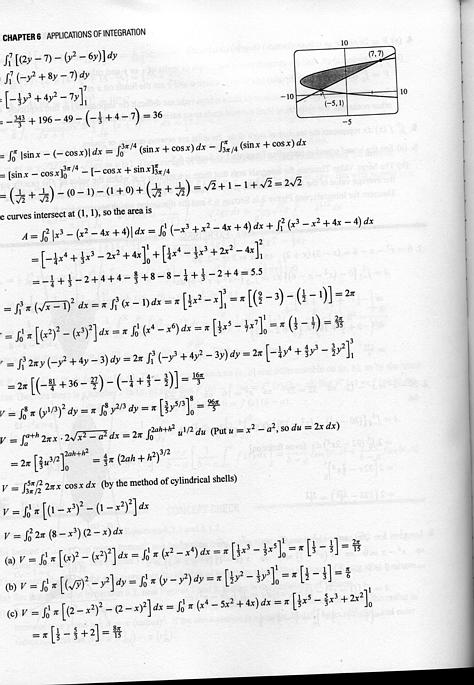 CHAPTER 6 APPLICATIONS OF INTEGRATION
∫₁⁷ [(2y − 7) − (y² − 6y)] dy
∫₁⁷ (−y² + 8y − 7) dy
= [−⅓y³ + 4y² − 7y]₁⁷
= −343/3 + 196 − 49 − (−⅓ + 4 − 7) = 36
10
(7, 7)
−10
10
(−5, 1)
−5
= ∫₀^π |sin x − (−cos x)| dx = ∫₀^{3π/4} (sin x + cos x) dx − ∫_{3π/4}^π (sin x + cos x) dx
= [sin x − cos x]₀^{3π/4} − [−cos x + sin x]_{3π/4}^π
= (1/√2 + 1/√2) − (0 − 1) − (1 + 0) + (1/√2 + 1/√2) = √2 + 1 − 1 + √2 = 2√2
e curves intersect at (1, 1), so the area is
A = ∫₀² |x³ − (x² − 4x + 4)| dx = ∫₀¹ (−x³ + x² − 4x + 4) dx + ∫₁² (x³ − x² + 4x − 4) dx
= [−¼x⁴ + ⅓x³ − 2x² + 4x]₀¹ + [¼x⁴ − ⅓x³ + 2x² − 4x]₁²
= −¼ + ⅓ − 2 + 4 + 4 − 8/3 + 8 − 8 − ¼ + ⅓ − 2 + 4 = 5.5
= ∫₁³ π (√(x − 1))² dx = π ∫₁³ (x − 1) dx = π [½x² − x]₁³ = π [(9/2 − 3) − (½ − 1)] = 2π
= ∫₀¹ π [(x²)² − (x³)²] dx = π ∫₀¹ (x⁴ − x⁶) dx = π [⅕x⁵ − ⅐x⁷]₀¹ = π (⅕ − ⅐) = 2π/35
V = ∫₁³ 2πy (−y² + 4y − 3) dy = 2π ∫₁³ (−y³ + 4y² − 3y) dy = 2π [−¼y⁴ + 4/3y³ − 3/2y²]₁³
= 2π [(−81/4 + 36 − 27/2) − (−¼ + 4/3 − 3/2)] = 16π/3
V = ∫₀⁸ π (y^{1/3})² dy = π ∫₀⁸ y^{2/3} dy = π [3/5 y^{5/3}]₀⁸ = 96π/5
V = ∫ₐ^{a+h} 2πx · 2√(x² − a²) dx = 2π ∫₀^{2ah+h²} u^{1/2} du (Put u = x² − a², so du = 2x dx)
= 2π [⅔u^{3/2}]₀^{2ah+h²} = 4/3 π (2ah + h²)^{3/2}
V = ∫_{3π/2}^{5π/2} 2πx cos x dx (by the method of cylindrical shells)
V = ∫₀¹ π [(1 − x³)² − (1 − x²)²] dx
V = ∫₀² 2π (8 − x³) (2 − x) dx
(a) V = ∫₀¹ π [(x)² − (x²)²] dx = ∫₀¹ π (x² − x⁴) dx = π [⅓x³ − ⅕x⁵]₀¹ = π [⅓ − ⅕] = 2π/15
(b) V = ∫₀¹ π [(√y)² − y²] dy = ∫₀¹ π (y − y²) dy = π [½y² − ⅓y³]₀¹ = π [½ − ⅓] = π/6
(c) V = ∫₀¹ π [(2 − x²)² − (2 − x)²] dx = ∫₀¹ π (x⁴ − 5x² + 4x) dx = π [⅕x⁵ − 5/3x³ + 2x²]₀¹
= π [⅕ − 5/3 + 2] = 8π/15